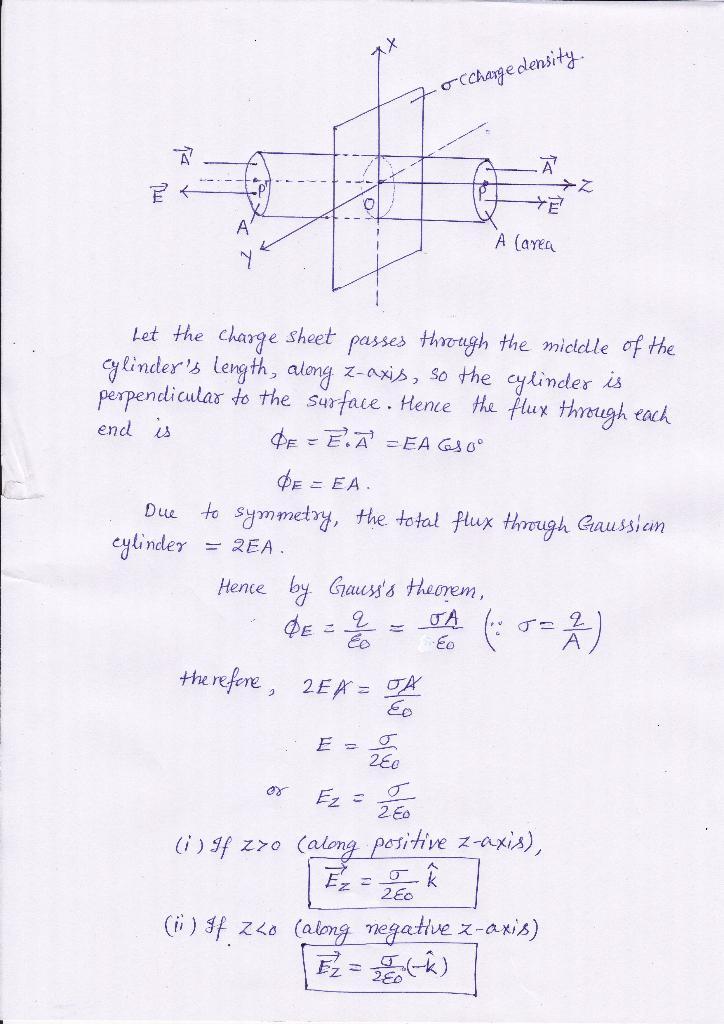 X
σ (charge density.
A⃗ A⃗
E⃗ P' P Z
O E⃗
A
Y A (area
Let the charge sheet passes through the middle of the
cylinder's length, along z-axis, so the cylinder is
perpendicular to the surface. Hence the flux through each
end is ϕE = E⃗.A⃗ = EA Cos 0°
ϕE = EA.
Due to symmetry, the total flux through Gaussian
cylinder = 2EA.
Hence by Gauss's theorem,
ϕE = q/ε0 = σA/ε0 (∵ σ = q/A)
therefore, 2EA = σA/ε0
E = σ/2ε0
or Ez = σ/2ε0
(i) If z>0 (along positive z-axis),
E⃗z = σ/2ε0 k̂
(ii) If z<0 (along negative z-axis)
E⃗z = σ/2ε0 (-k̂)